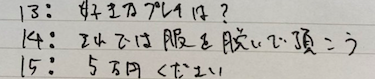 13: 好きなプレイは?
14: それでは服を脱いで頂こう
15: 5万円ください